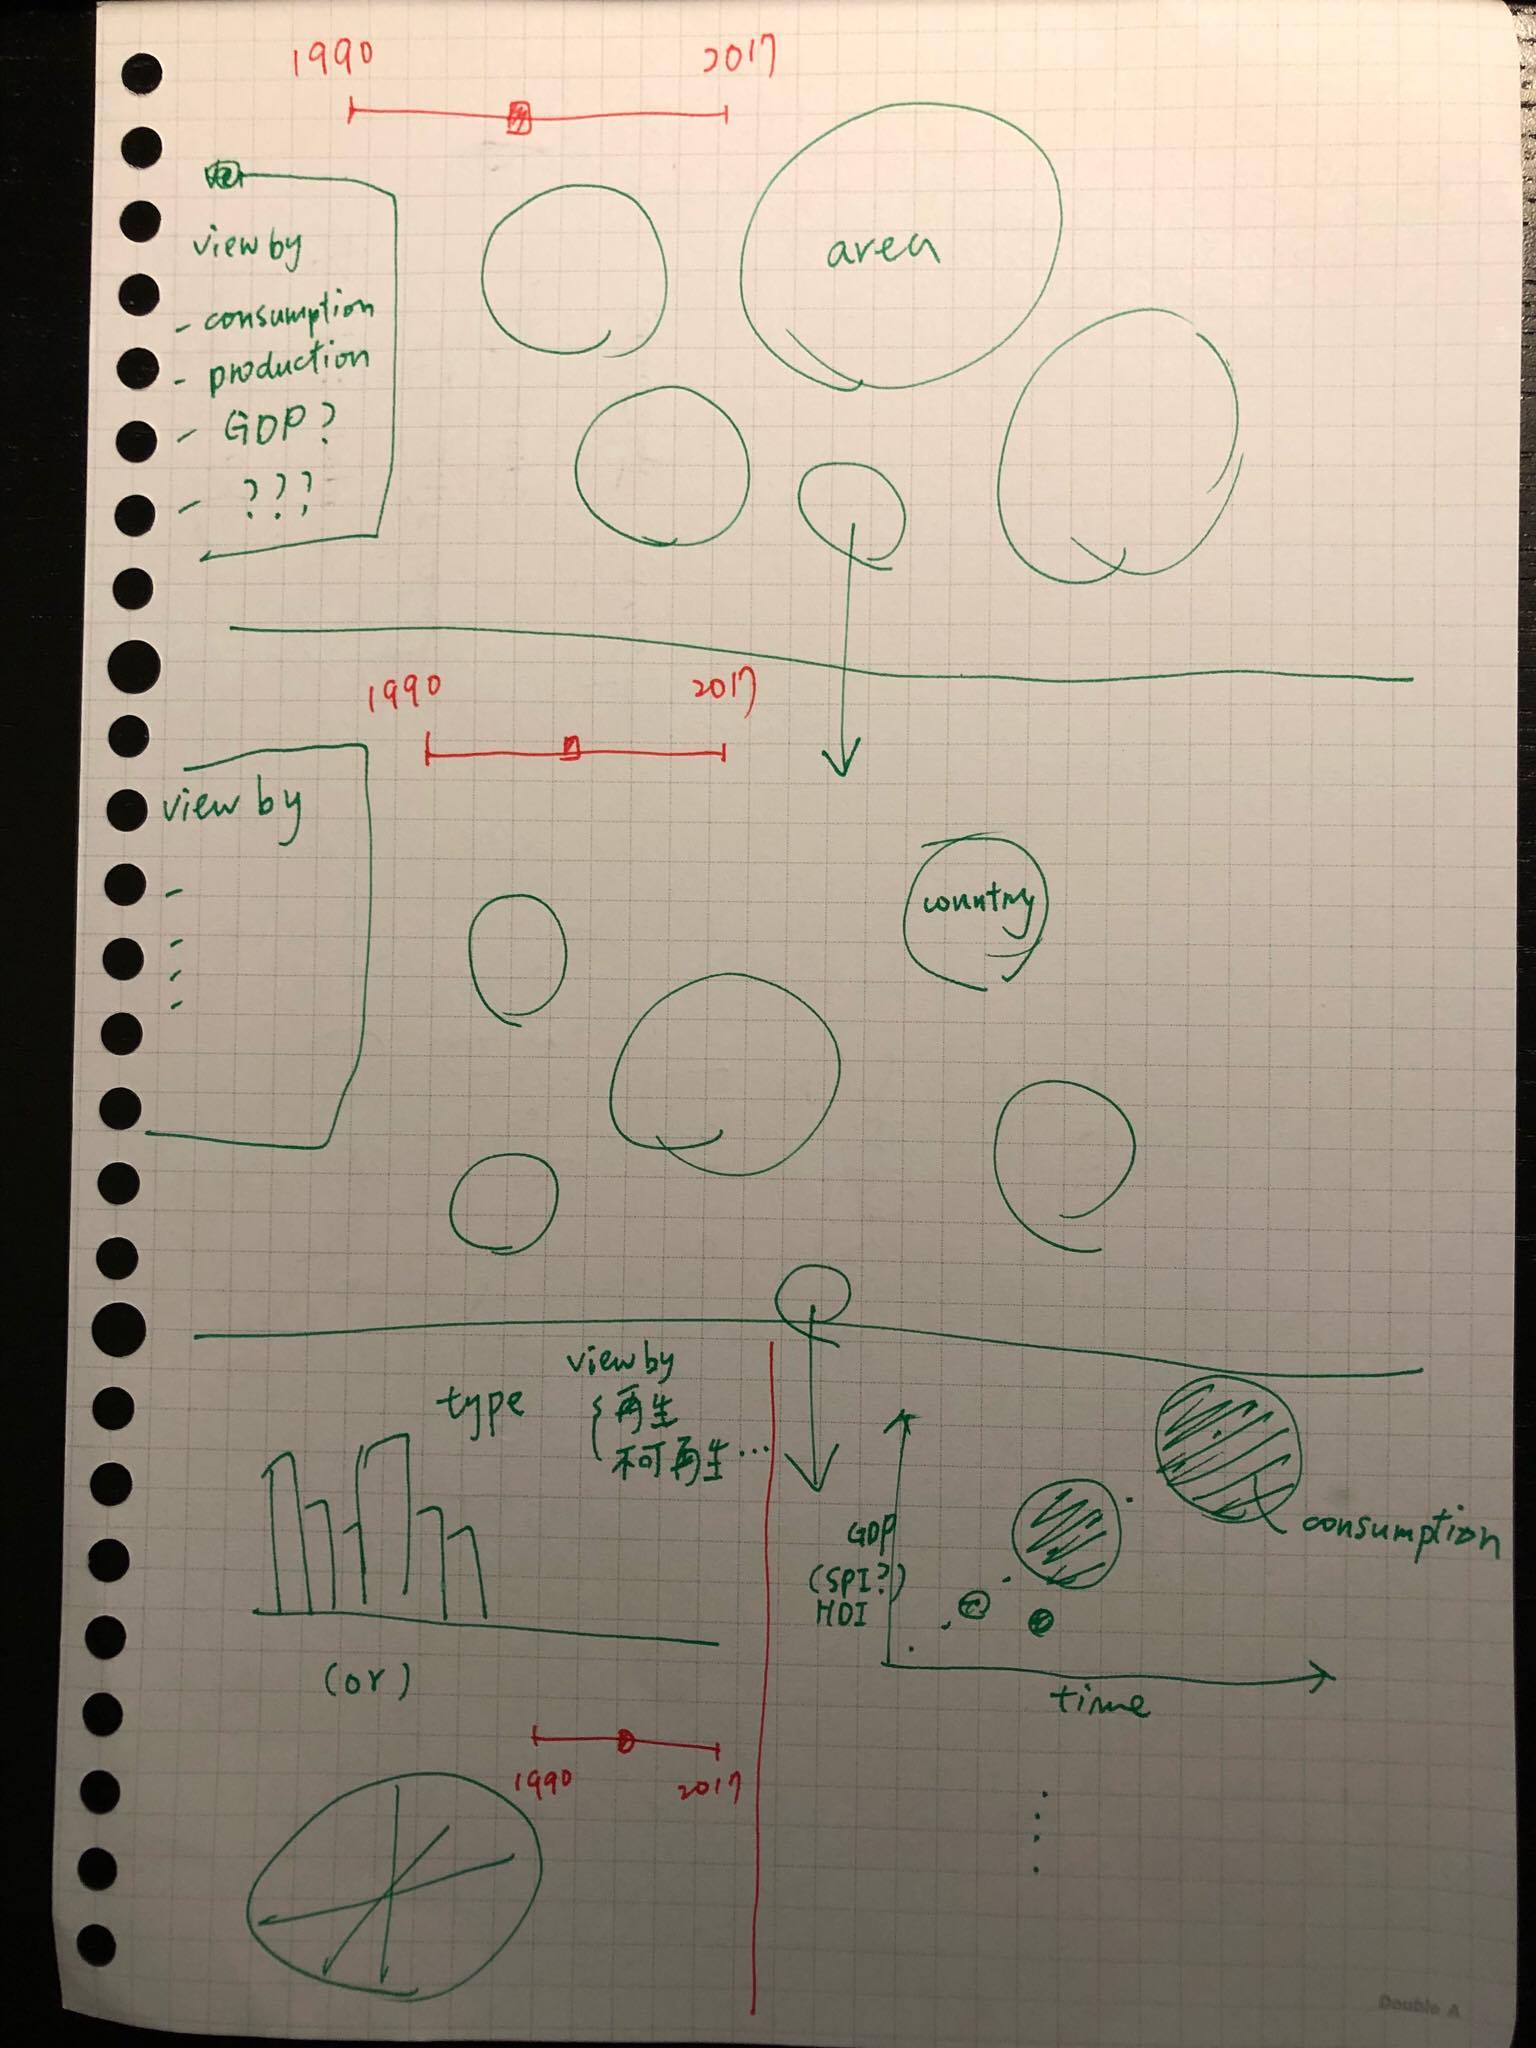 1990
2017
view by
- consumption
- production
- GDP?
- ???
area
1990
2017
view by
-
-
-
-
country
type
view by
再生
不可再生...
(or)
1990
2017
GDP
(SPI?)
HDI
consumption
time
Double A